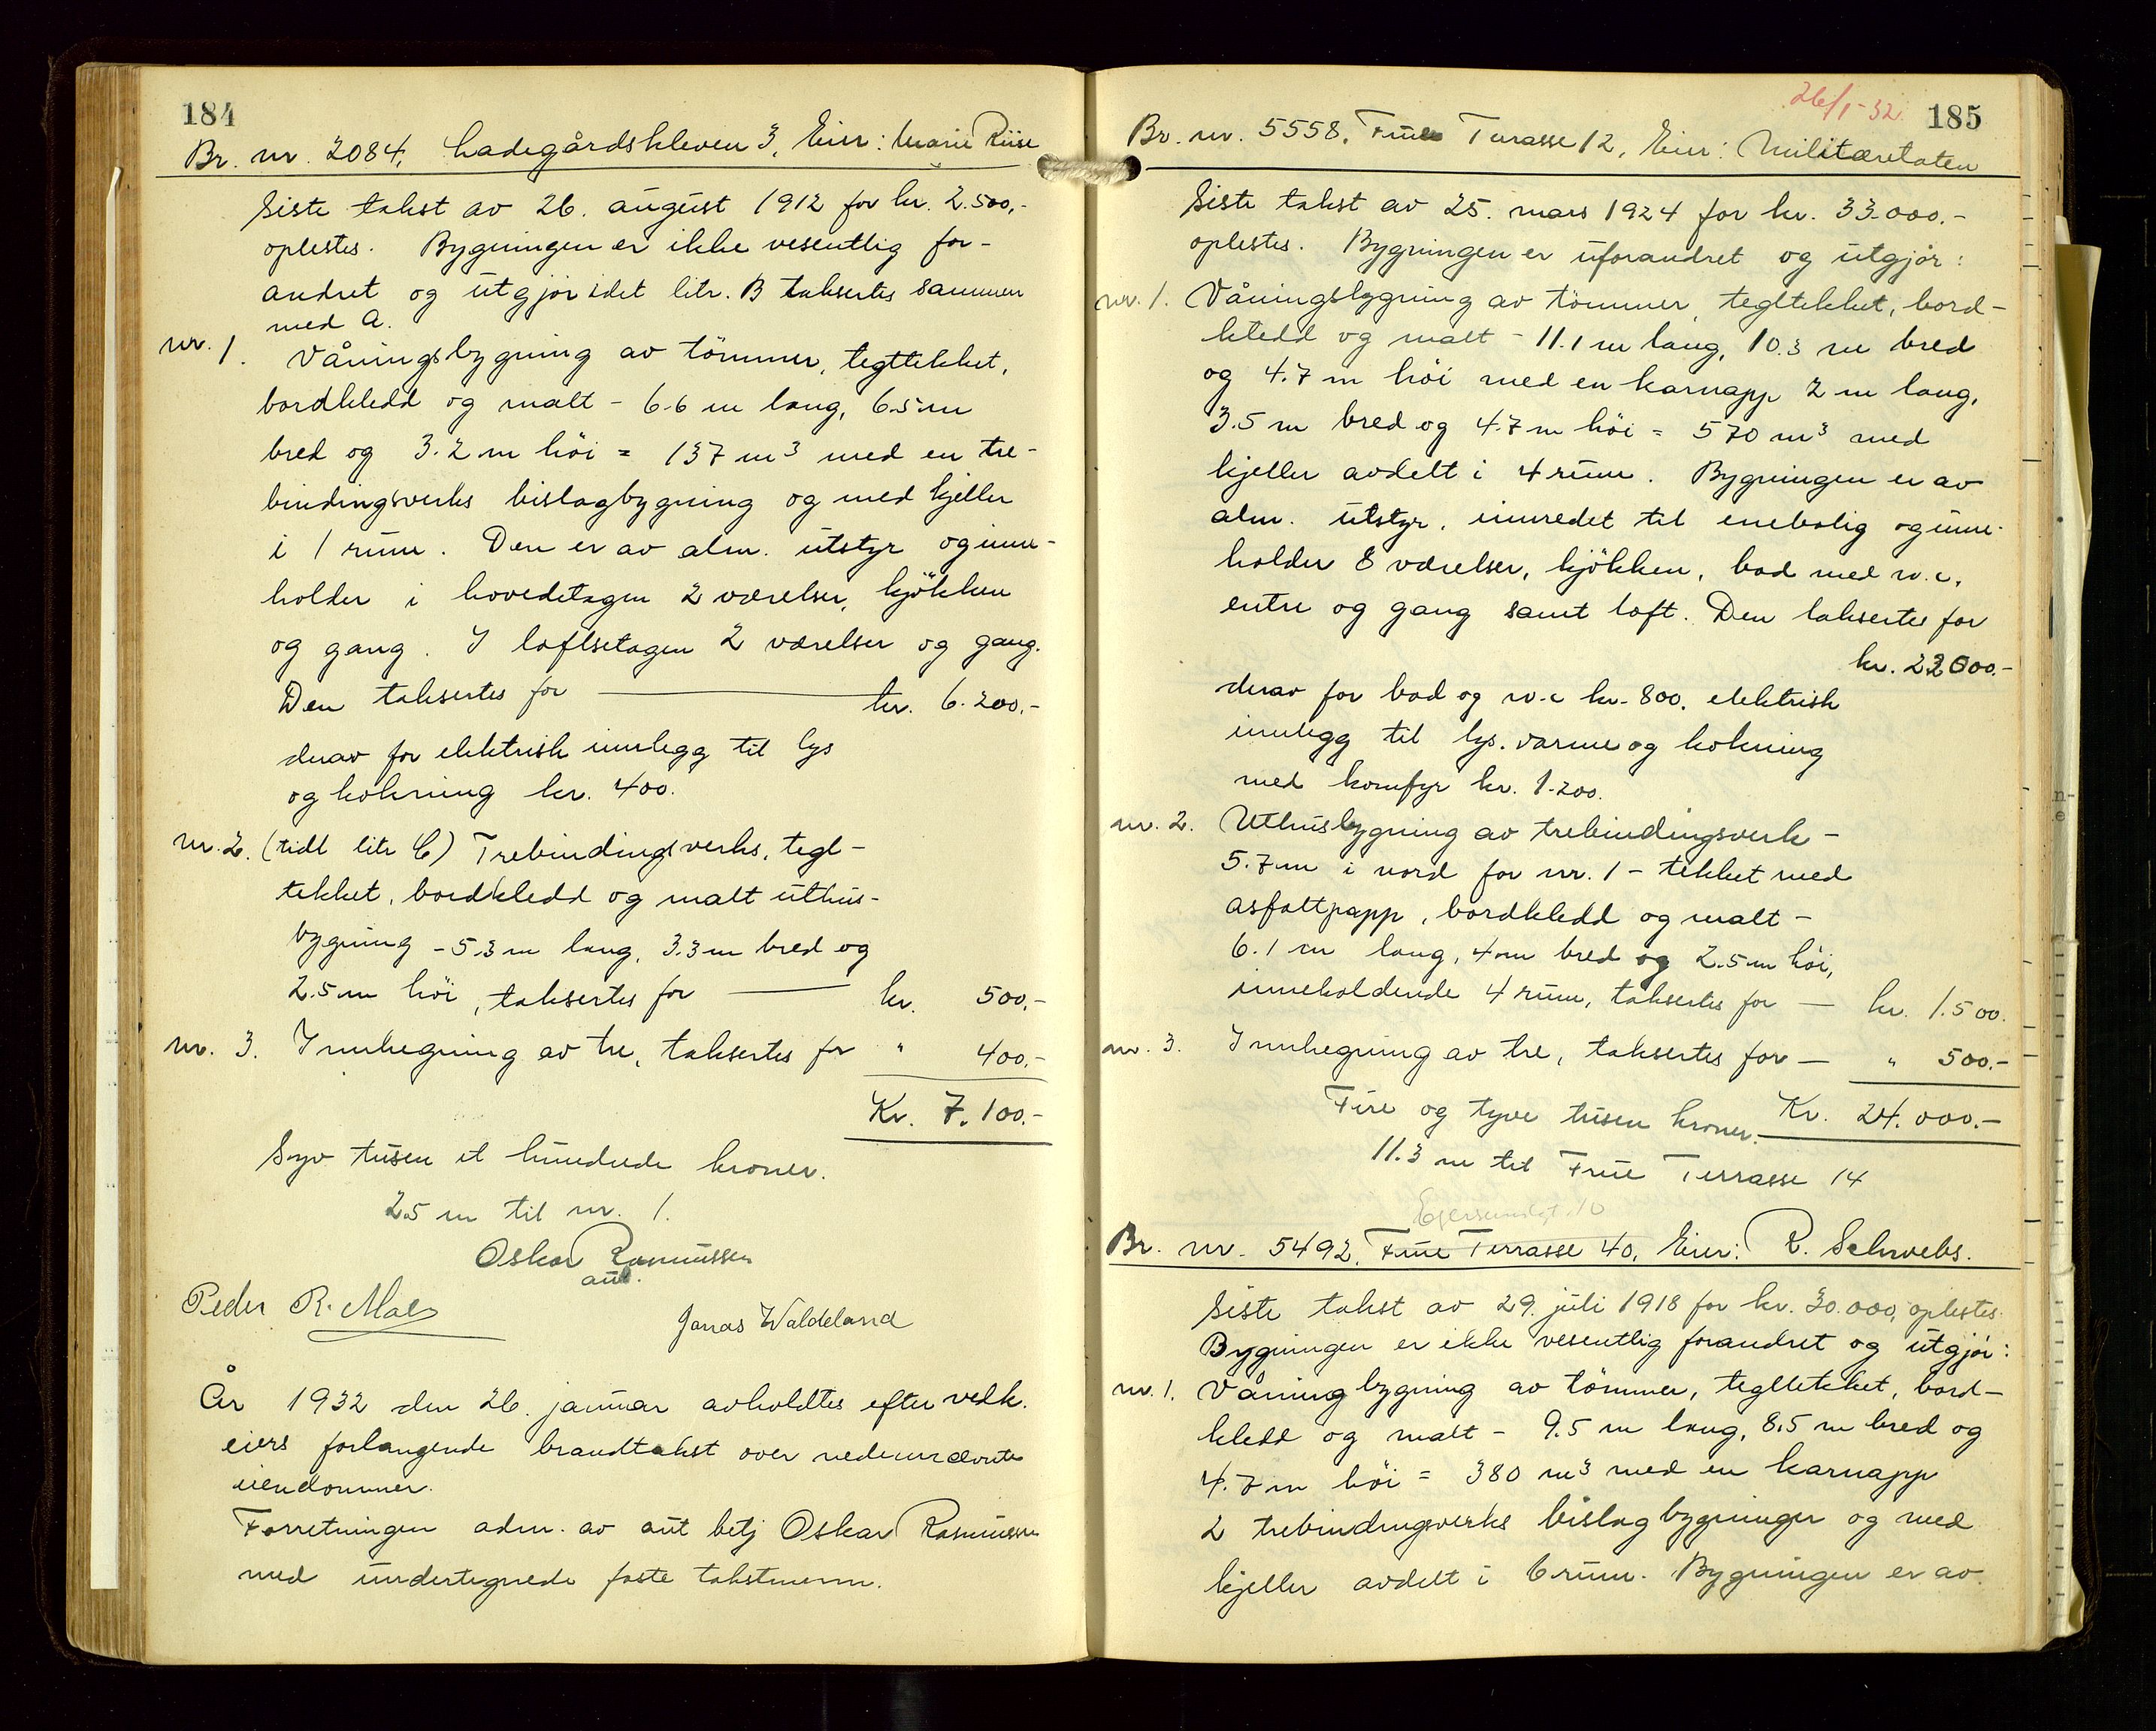 184
Br. nr. 2084, Ladegårdskleven 3, Eier: Marie Riise
Siste takst av 26. august 1912 for kr. 2.500,-
oplestes. Bygningen er ikke vesentlig for-
andret og utgjör idet litr. B taksertes sammen
med A.
nr. 1. Våningsbygning av tömmer, tegltekket,
bordkledd og malt - 6.6 m lang, 6.5 m
bred og 3.2 m höi = 137 m³ med en tre-
bindingsverks bislagbygning og med kjeller
i 1 rum. Den er av alm. utstyr og inne-
holder i hovedetagen 2 værelser, kjökken
og gang. I loftsetagen 2 værelser og gang.
Den taksertes for kr. 6.200,-
derav for elektrisk innlegg til lys
og kokning kr. 400.
nr. 2. (tidl litr C) Trebindingsverks, tegl-
tekket, bordkledd og malt uthus-
bygning - 5.3 m lang, 3.3 m bred og
2.5 m höi, taksertes for kr. 500,-
nr. 3. Innhegning av tre, taksertes for " 400,-
Kr. 7.100,-
Syv tusen et hundrede kroner.
2.5 m til nr. 1.
Oskar Rasmussen
aut.
Peder R. Mæle
Jonas Waldeland
År 1932 den 26. januar avholdtes efter vedk.
eiers forlangende brandtakst over nedennævnte
eiendommer.
Forretningen adm. av aut betj Oskar Rasmussen
med undertegnede faste takstmenn.
26/1-32. 185
Br. nr. 5558, Frue Terasse 12, Eier: Militæretaten
Siste takst av 25. mars 1924 for kr. 33.000.-
oplestes. Bygningen er uforandret og utgjör:
nr. 1. Våningsbygning av tömmer, tegltekket, bord-
kledd og malt - 11.1 m lang, 10.3 m bred
og 4.7 m höi med en karnapp 2 m lang,
3.5 m bred og 4.7 m höi = 570 m³ med
kjeller avdelt i 4 rum. Bygningen er av
alm. utstyr, innredet til enebolig og inne-
holder 8 værelser, kjökken, bad med w.c,
entre og gang samt loft. Den taksertes for
kr. 22000.-
derav for bad og w.c kr. 800. elektrisk
innlegg til lys. varme og kokning
med komfyr kr. 1.200.
nr. 2. Uthusbygning av trebindingsverk -
5.7 m i nord for nr. 1 - tekket med
asfaltpapp, bordkledd og malt -
6.1 m lang, 4 m bred og 2.5 m höi,
inneholdende 4 rum, taksertes for - kr. 1.500.
nr. 3. Innhegning av tre, taksertes for - " 500.-
Fire og tyve tusen kroner. Kr. 24.000.-
11.3 m til Frue Terrasse 14
Egersundgt. 10
Br. nr. 5492, Frue Terrasse 40, Eier: R. Schwebs.
Siste takst av 29. juli 1918 for kr. 30.000, oplestes.
Bygningen er ikke vesentlig forandret og utgjör:
nr. 1. Våningbygning av tömmer, tegltekket, bord-
kledd og malt - 9.5 m lang, 8.5 m bred og
4.7 m höi = 380 m³ med en karnapp
2 trebindingsverks bislagbygninger og med
kjeller avdelt i 6 rum. Bygningen er av